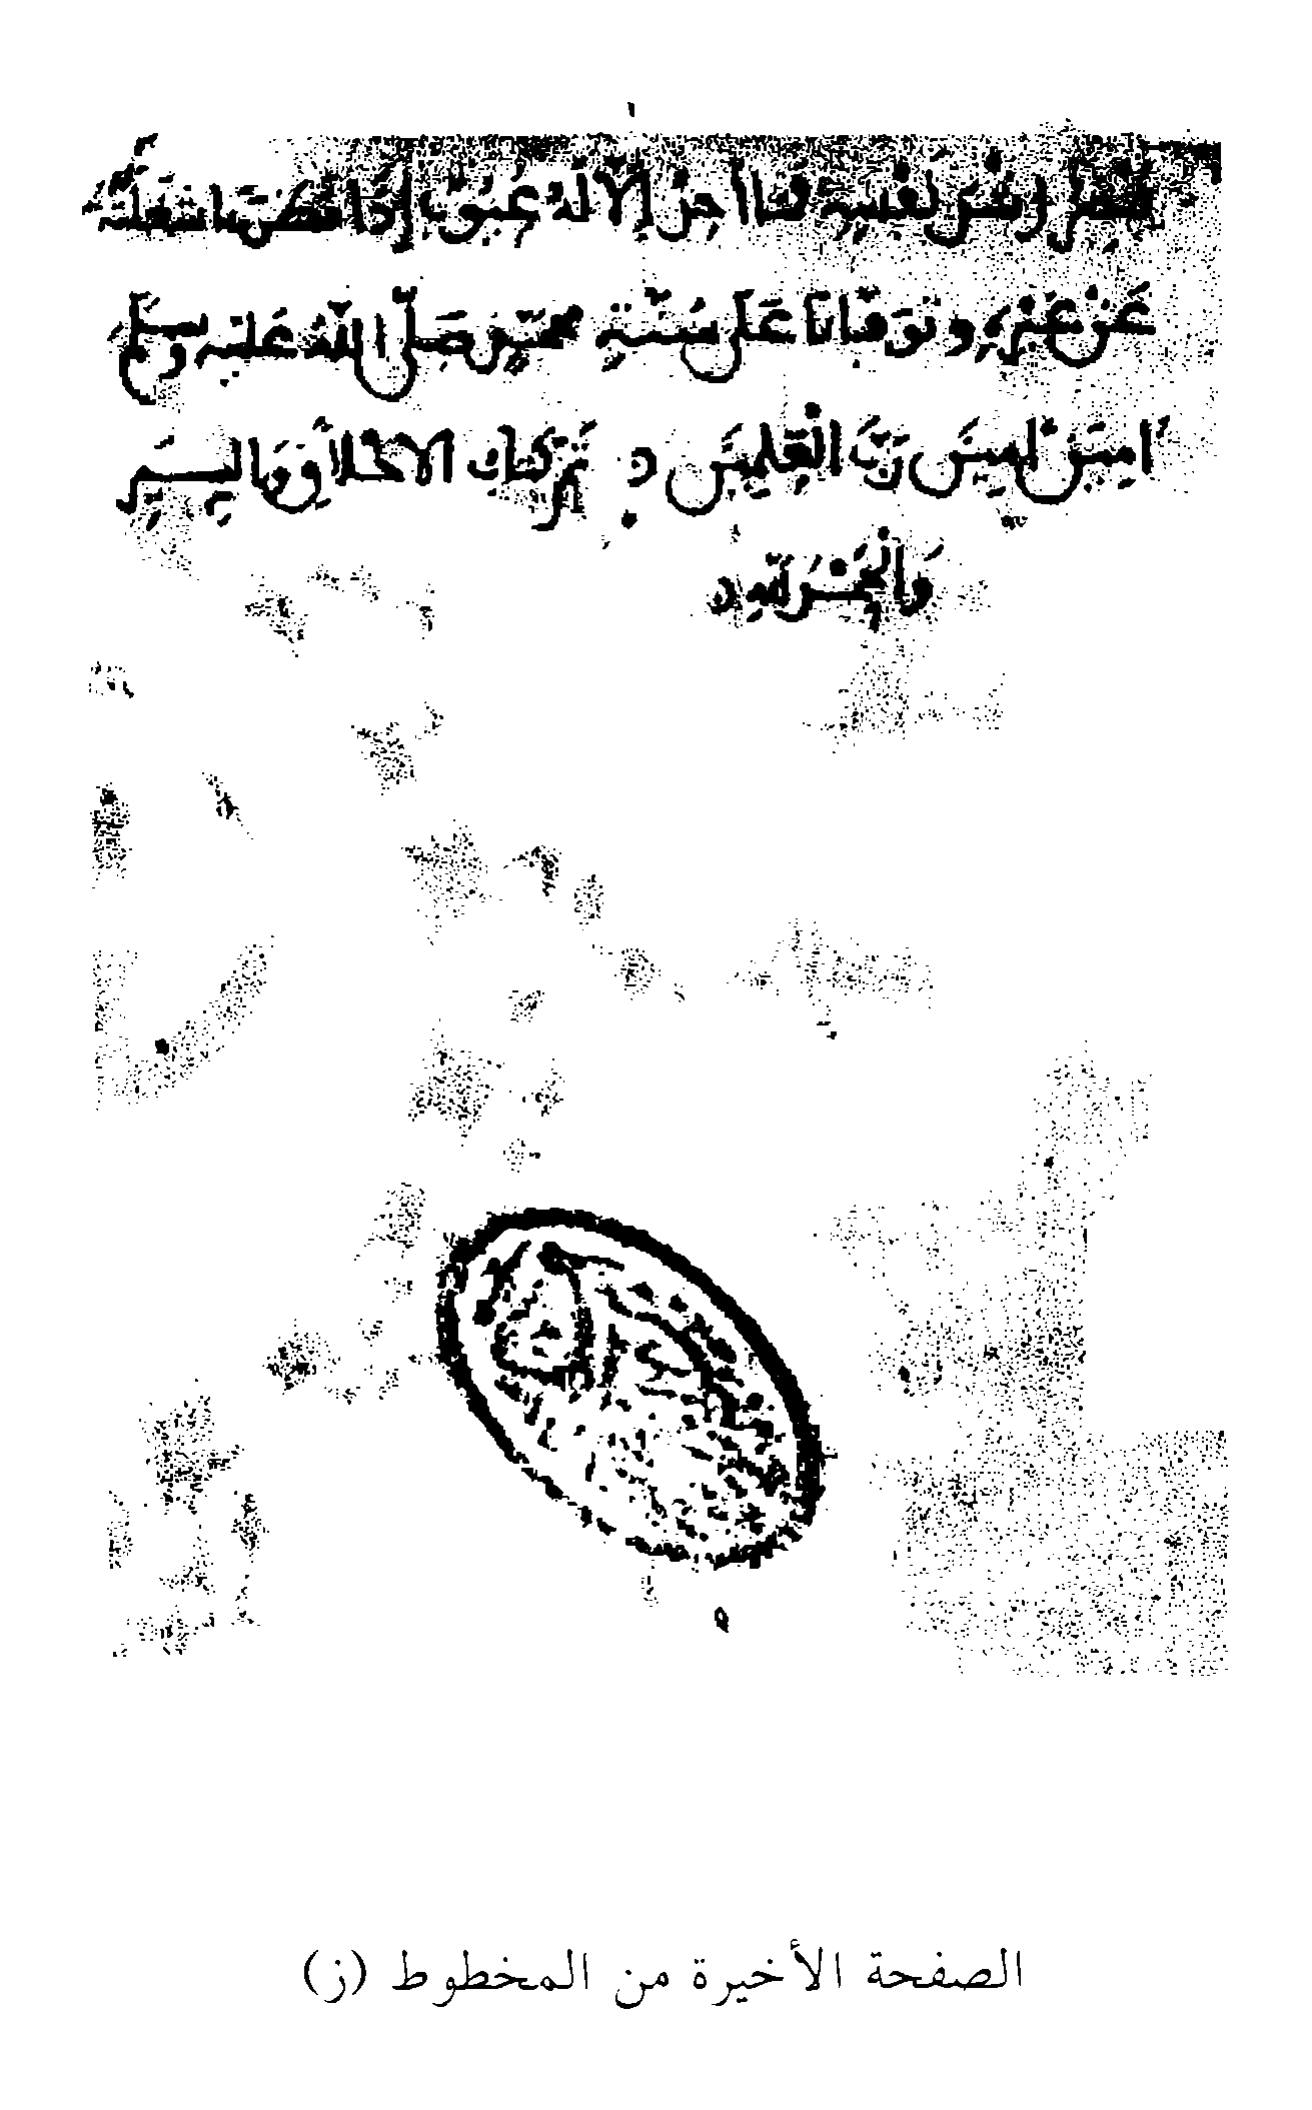 لنفسه فما احد الا له عيوب إذا
عن غيره وتوفانا على سنة محمد صلى الله عليه وسلم
امين امين رب العلمين تم كتاب الاخلاق والسير
والحمد لله
الصفحة الأخيرة من المخطوط (ز)